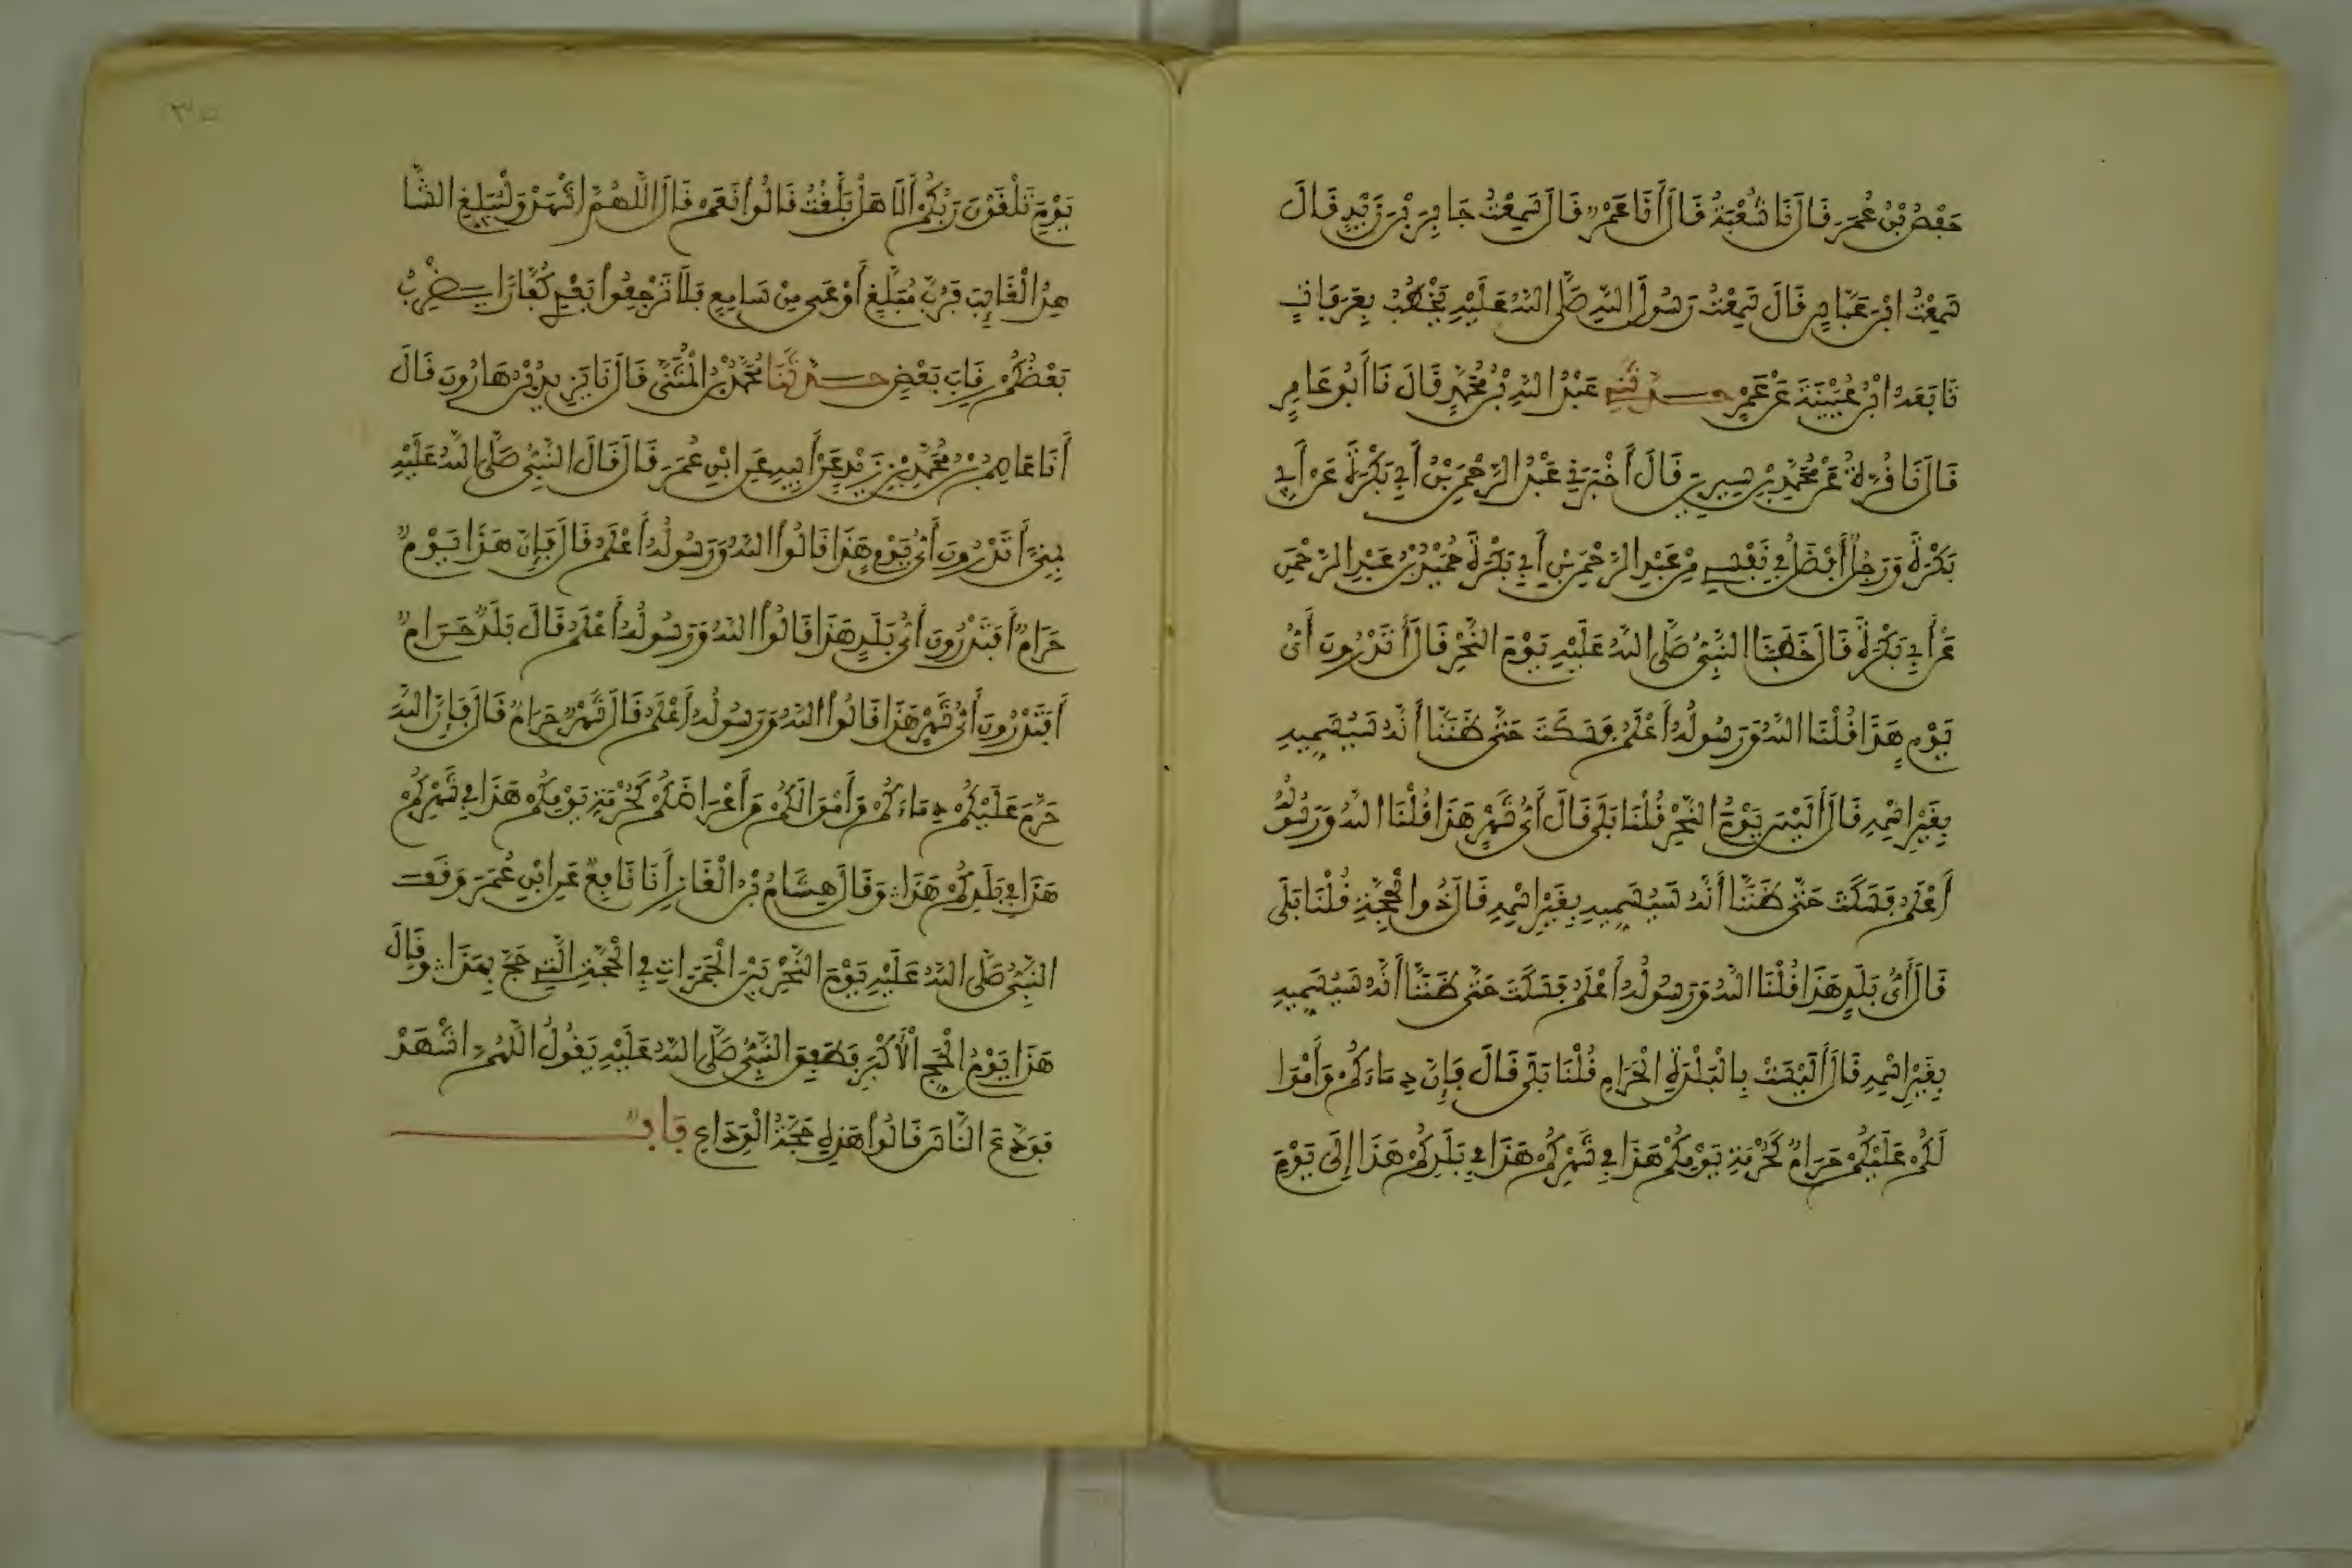 حَفْصُ بْنُ عُمَرَ قَالَ نَا شُعْبَةُ قَالَ أَنَا عَمْرٌو قَالَ سَمِعْتُ جَابِرَ بْنَ زَيْدٍ قَالَ
سَمِعْتُ ابْنَ عَبَّاسٍ قَالَ سَمِعْتُ رَسُولَ اللهِ صَلَّى اللهُ عَلَيْهِ يَخْطُبُ بِعَرَفَاتٍ
تَابَعَهُ ابْنُ عُيَيْنَةَ عَنْ عَمْرٍو حَدَّثَنِي عَبْدُ اللهِ بْنُ مُحَمَّدٍ قَالَ نَا أَبُو عَامِرٍ
قَالَ نَا قُرَّةُ عَنْ مُحَمَّدِ بْنِ سِيرِينَ قَالَ أَخْبَرَنِي عَبْدُ الرَّحْمَنِ بْنُ أَبِي بَكْرَةَ عَنْ أَبِي
بَكْرَةَ وَرَجُلٌ أَفْضَلُ فِي نَفْسِي مِنْ عَبْدِ الرَّحْمَنِ بْنِ أَبِي بَكْرَةَ حُمَيْدُ بْنُ عَبْدِ الرَّحْمَنِ
عَنْ أَبِي بَكْرَةَ قَالَ خَطَبَنَا النَّبِيُّ صَلَّى اللهُ عَلَيْهِ يَوْمَ النَّحْرِ قَالَ أَتَدْرُونَ أَيُّ
يَوْمٍ هَذَا قُلْنَا اللهُ وَرَسُولُهُ أَعْلَمُ فَسَكَتَ حَتَّى ظَنَنَّا أَنَّهُ سَيُسَمِّيهِ
بِغَيْرِ اسْمِهِ قَالَ أَلَيْسَ يَوْمُ النَّحْرِ قُلْنَا بَلَى قَالَ أَيُّ شَهْرٍ هَذَا قُلْنَا اللهُ وَرَسُولُهُ
أَعْلَمُ فَسَكَتَ حَتَّى ظَنَنَّا أَنَّهُ سَيُسَمِّيهِ بِغَيْرِ اسْمِهِ قَالَ ذُو الْحِجَّةِ قُلْنَا بَلَى
قَالَ أَيُّ بَلَدٍ هَذَا قُلْنَا اللهُ وَرَسُولُهُ أَعْلَمُ فَسَكَتَ حَتَّى ظَنَنَّا أَنَّهُ سَيُسَمِّيهِ
بِغَيْرِ اسْمِهِ قَالَ أَلَيْسَتْ بِالْبَلْدَةِ الْحَرَامِ قُلْنَا بَلَى قَالَ فَإِنَّ دِمَاءَكُمْ وَأَمْوَا
لَكُمْ عَلَيْكُمْ حَرَامٌ كَحُرْمَةِ يَوْمِكُمْ هَذَا فِي شَهْرِكُمْ هَذَا فِي بَلَدِكُمْ هَذَا إِلَى يَوْمِ
يَوْمَ تَلْقَوْنَ رَبَّكُمْ أَلَا هَلْ بَلَّغْتُ قَالُوا نَعَمْ قَالَ اللَّهُمَّ اشْهَدْ وَلْيُبَلِّغِ الشَّا
هِدُ الْغَائِبَ فَرُبَّ مُبَلَّغٍ أَوْعَى مِنْ سَامِعٍ فَلَا تَرْجِعُوا بَعْدِي كُفَّارًا يَضْرِبُ
بَعْضُكُمْ رِقَابَ بَعْضٍ حَدَّثَنَا مُحَمَّدُ بْنُ الْمُثَنَّى قَالَ نَا يَزِيدُ بْنُ هَارُونَ قَالَ
أَنَا عَاصِمُ بْنُ مُحَمَّدِ بْنِ زَيْدٍ عَنْ أَبِيهِ عَنِ ابْنِ عُمَرَ قَالَ قَالَ النَّبِيُّ صَلَّى اللهُ عَلَيْهِ
بِمِنًى أَتَدْرُونَ أَيُّ يَوْمٍ هَذَا قَالُوا اللهُ وَرَسُولُهُ أَعْلَمُ قَالَ فَإِنَّ هَذَا يَوْمٌ
حَرَامٌ أَفَتَدْرُونَ أَيُّ بَلَدٍ هَذَا قَالُوا اللهُ وَرَسُولُهُ أَعْلَمُ قَالَ بَلَدٌ حَرَامٌ
أَفَتَدْرُونَ أَيُّ شَهْرٍ هَذَا قَالُوا اللهُ وَرَسُولُهُ أَعْلَمُ قَالَ شَهْرٌ حَرَامٌ قَالَ فَإِنَّ اللهَ
حَرَّمَ عَلَيْكُمْ دِمَاءَكُمْ وَأَمْوَالَكُمْ وَأَعْرَاضَكُمْ كَحُرْمَةِ يَوْمِكُمْ هَذَا فِي شَهْرِكُمْ
هَذَا فِي بَلَدِكُمْ هَذَا وَقَالَ هِشَامُ بْنُ الْغَازِ أَنَا نَافِعٌ عَنِ ابْنِ عُمَرَ وَقَفَ
النَّبِيُّ صَلَّى اللهُ عَلَيْهِ يَوْمَ النَّحْرِ بَيْنَ الْجَمَرَاتِ فِي الْحَجَّةِ الَّتِي حَجَّ بِهَذَا وَقَالَ
هَذَا يَوْمُ الْحَجِّ الْأَكْبَرِ فَطَفِقَ النَّبِيُّ صَلَّى اللهُ عَلَيْهِ يَقُولُ اللَّهُمَّ اشْهَدْ
فَوَدَّعَ النَّاسَ قَالُوا هَذِهِ حَجَّةُ الْوَدَاعِ بَابٌ